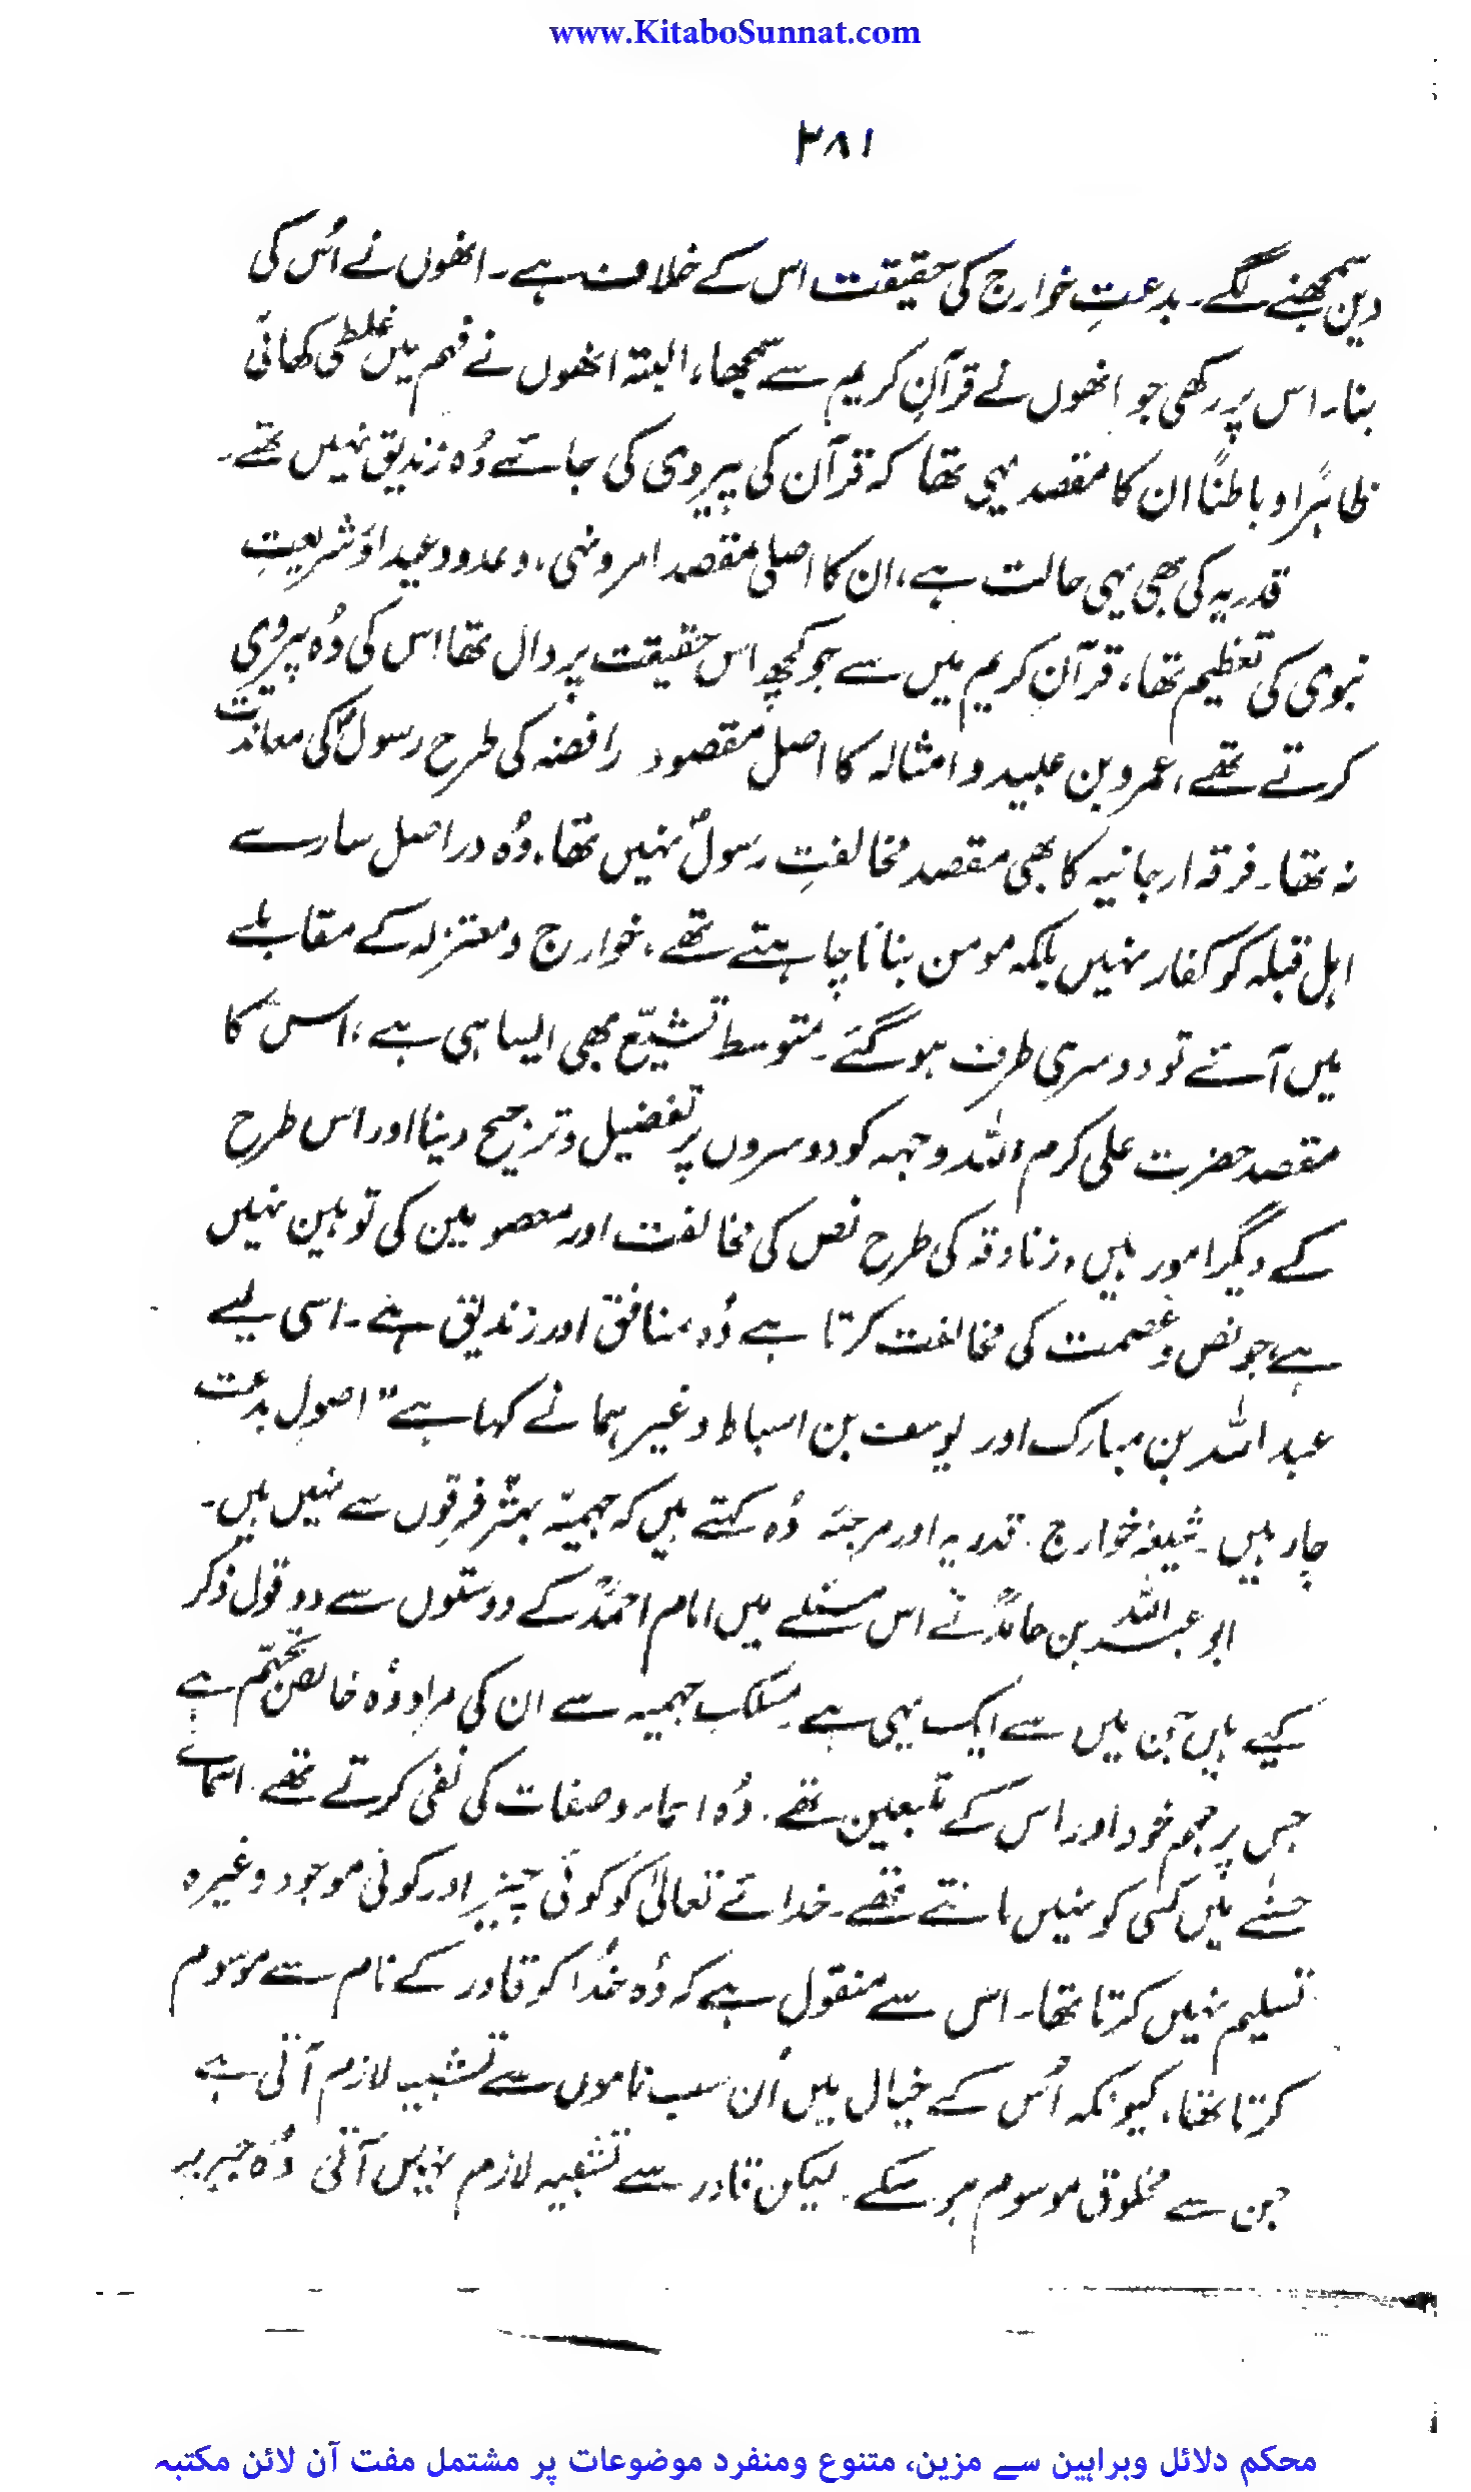 www.KitaboSunnat.com
۲۸۱
دین سمجھنے لگے۔ بدعتِ خوارج کی حقیقت اس کے خلاف ہے۔ انھوں نے اُس کی
بنا۔ اس پر رکھی جو انھوں نے قرآنِ کریم سے سمجھا، البتہ انھوں نے فہم میں غلطی کھائی
ظاہراً و باطناً ان کا مقصد یہی تھا کہ قرآن کی پیروی کی جائے وُہ زندیق نہیں تھے۔
قدریہ کی بھی یہی حالت ہے، ان کا اصلی مقصد امر و نہی، وعدو وعید اور شریعتِ
نبوی کی تعظیم تھا، قرآنِ کریم میں سے جو کچھ اس حقیقت پر دال تھا اس کی وُہ پیروی
کرتے تھے، عمرو بن عبید و امثالہ کا اصل مقصود رافضہ کی طرح رسولؐ کی معاندت
نہ تھا۔ فرقہ ارجائیہ کا بھی مقصد مخالفتِ رسولؐ نہیں تھا۔ وُہ دراصل سارے
اہل قبلہ کو کفار نہیں بلکہ مومن بنانا چاہتے تھے، خوارج و معتزلہ کے مقابلے
میں آئے تو دوسری طرف ہو گئے۔ متوسط تشیّع بھی ایسا ہی ہے، اس کا
مقصد حضرت علی کرم اللہ وجہہ کو دوسروں پر تفضیل و ترجیح دینا اور اس طرح
کے دیگر امور ہیں، زنادقہ کی طرح نص کی مخالفت اور معصومین کی توہین نہیں
ہے، جو نص و عصمت کی مخالفت کرتا ہے وُہ منافق اور زندیق ہے۔ اسی لیے
عبد اللہ بن مبارک اور یوسف بن اسباط وغیرہما نے کہا ہے "اصولِ بدعت
چار ہیں۔ شیعہ، خوارج۔ قدریہ اور مرجئہ وُہ کہتے ہیں کہ جہمیّہ بہتّر فرقوں سے نہیں ہیں۔
ابو عبد اللہ بن حامدؒ نے اس مسئلے میں امام احمدؒ کے دوستوں سے دو قول ذکر
کیے ہیں اُن میں سے ایک یہی ہے۔ مسلکِ جہمیہ سے ان کی مراد وُہ خالص تجہّم ہے
جس پر جہم خود اور اس کے تابعین تھے۔ وُہ اسماء و صفات کی نفی کرتے تھے۔ اسمائے
حسنٰے میں کسی کو نہیں مانتے تھے۔ خدائے تعالیٰ کو کوئی چیز اور کوئی موجود وغیرہ
تسلیم نہیں کرتا تھا۔ اس سے منقول ہے کہ وُہ خُدا کو قادر کے نام سے موسوم
کرتا تھا، کیونکہ اُس کے خیال میں اُن سب ناموں سے تشبیہ لازم آتی ہے
جن سے مخلوق موسوم ہو سکے۔ لیکن قادر سے تشبیہ لازم نہیں آتی وُہ جبریہ
محکم دلائل وبراہین سے مزین، متنوع ومنفرد موضوعات پر مشتمل مفت آن لائن مکتبہ